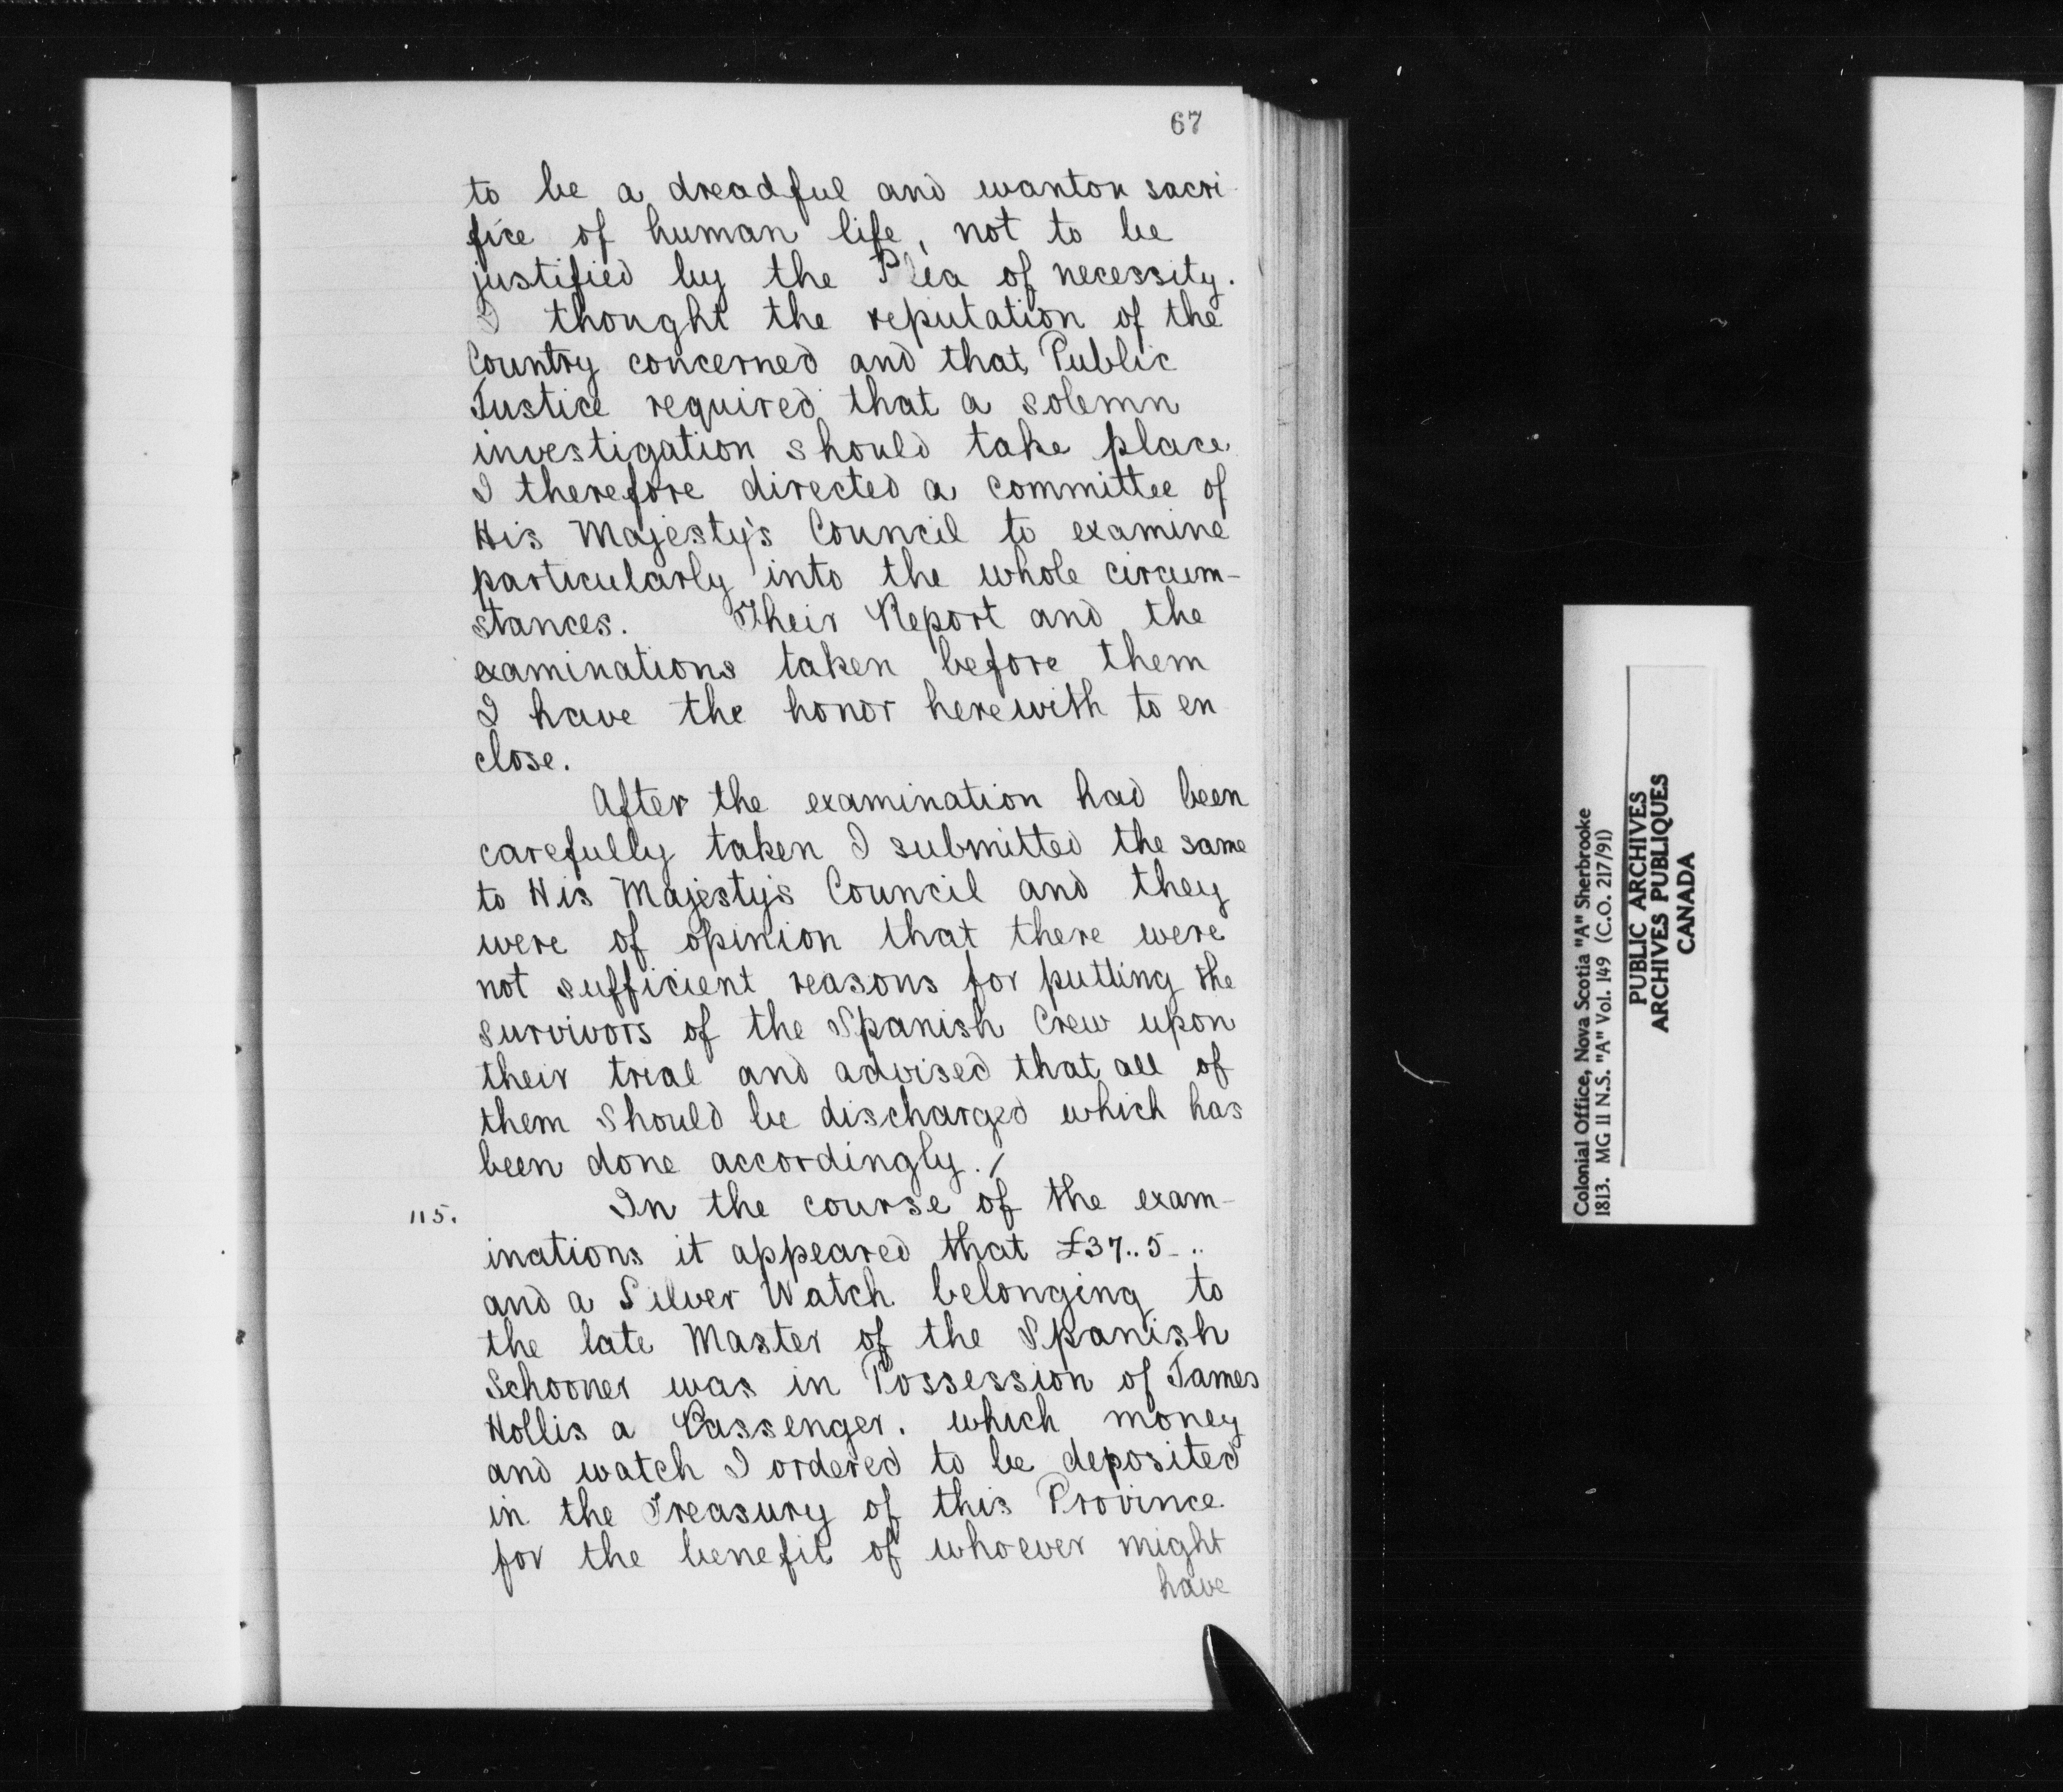 67
to be a dreadful and wanton sacri-
fice of human life, not to be
justified by the Plea of necessity.
I thought the reputation of the
Country concerned and that Public
Justice required that a solemn
investigation should take place
I therefore directed a committee of
His Majesty's Council to examine
particularly into the whole circum-
stances. Their Report and the
examinations taken before them
I have the honor herewith to en
close.
After the examination had been
carefully taken I submitted the same
to His Majesty's Council and they
were of opinion that there were
not sufficient reasons for putting the
survivors of the Spanish Crew upon
their trial and advised that all of
them should be discharged which has
been done accordingly./
115. In the course of the exam-
inations it appeared that £37..5-..
and a Silver Watch belonging to
the late Master of the Spanish
Schooner was in Possession of James
Hollis a Passenger. which money
and watch I ordered to be deposited
in the Treasury of this Province
for the benefit of whoever might
have
Colonial Office, Nova Scotia "A" Sherbrooke
1813. MG 11 N.S. "A" Vol. 149 (C.O. 217/91)
PUBLIC ARCHIVES
ARCHIVES PUBLIQUES
CANADA